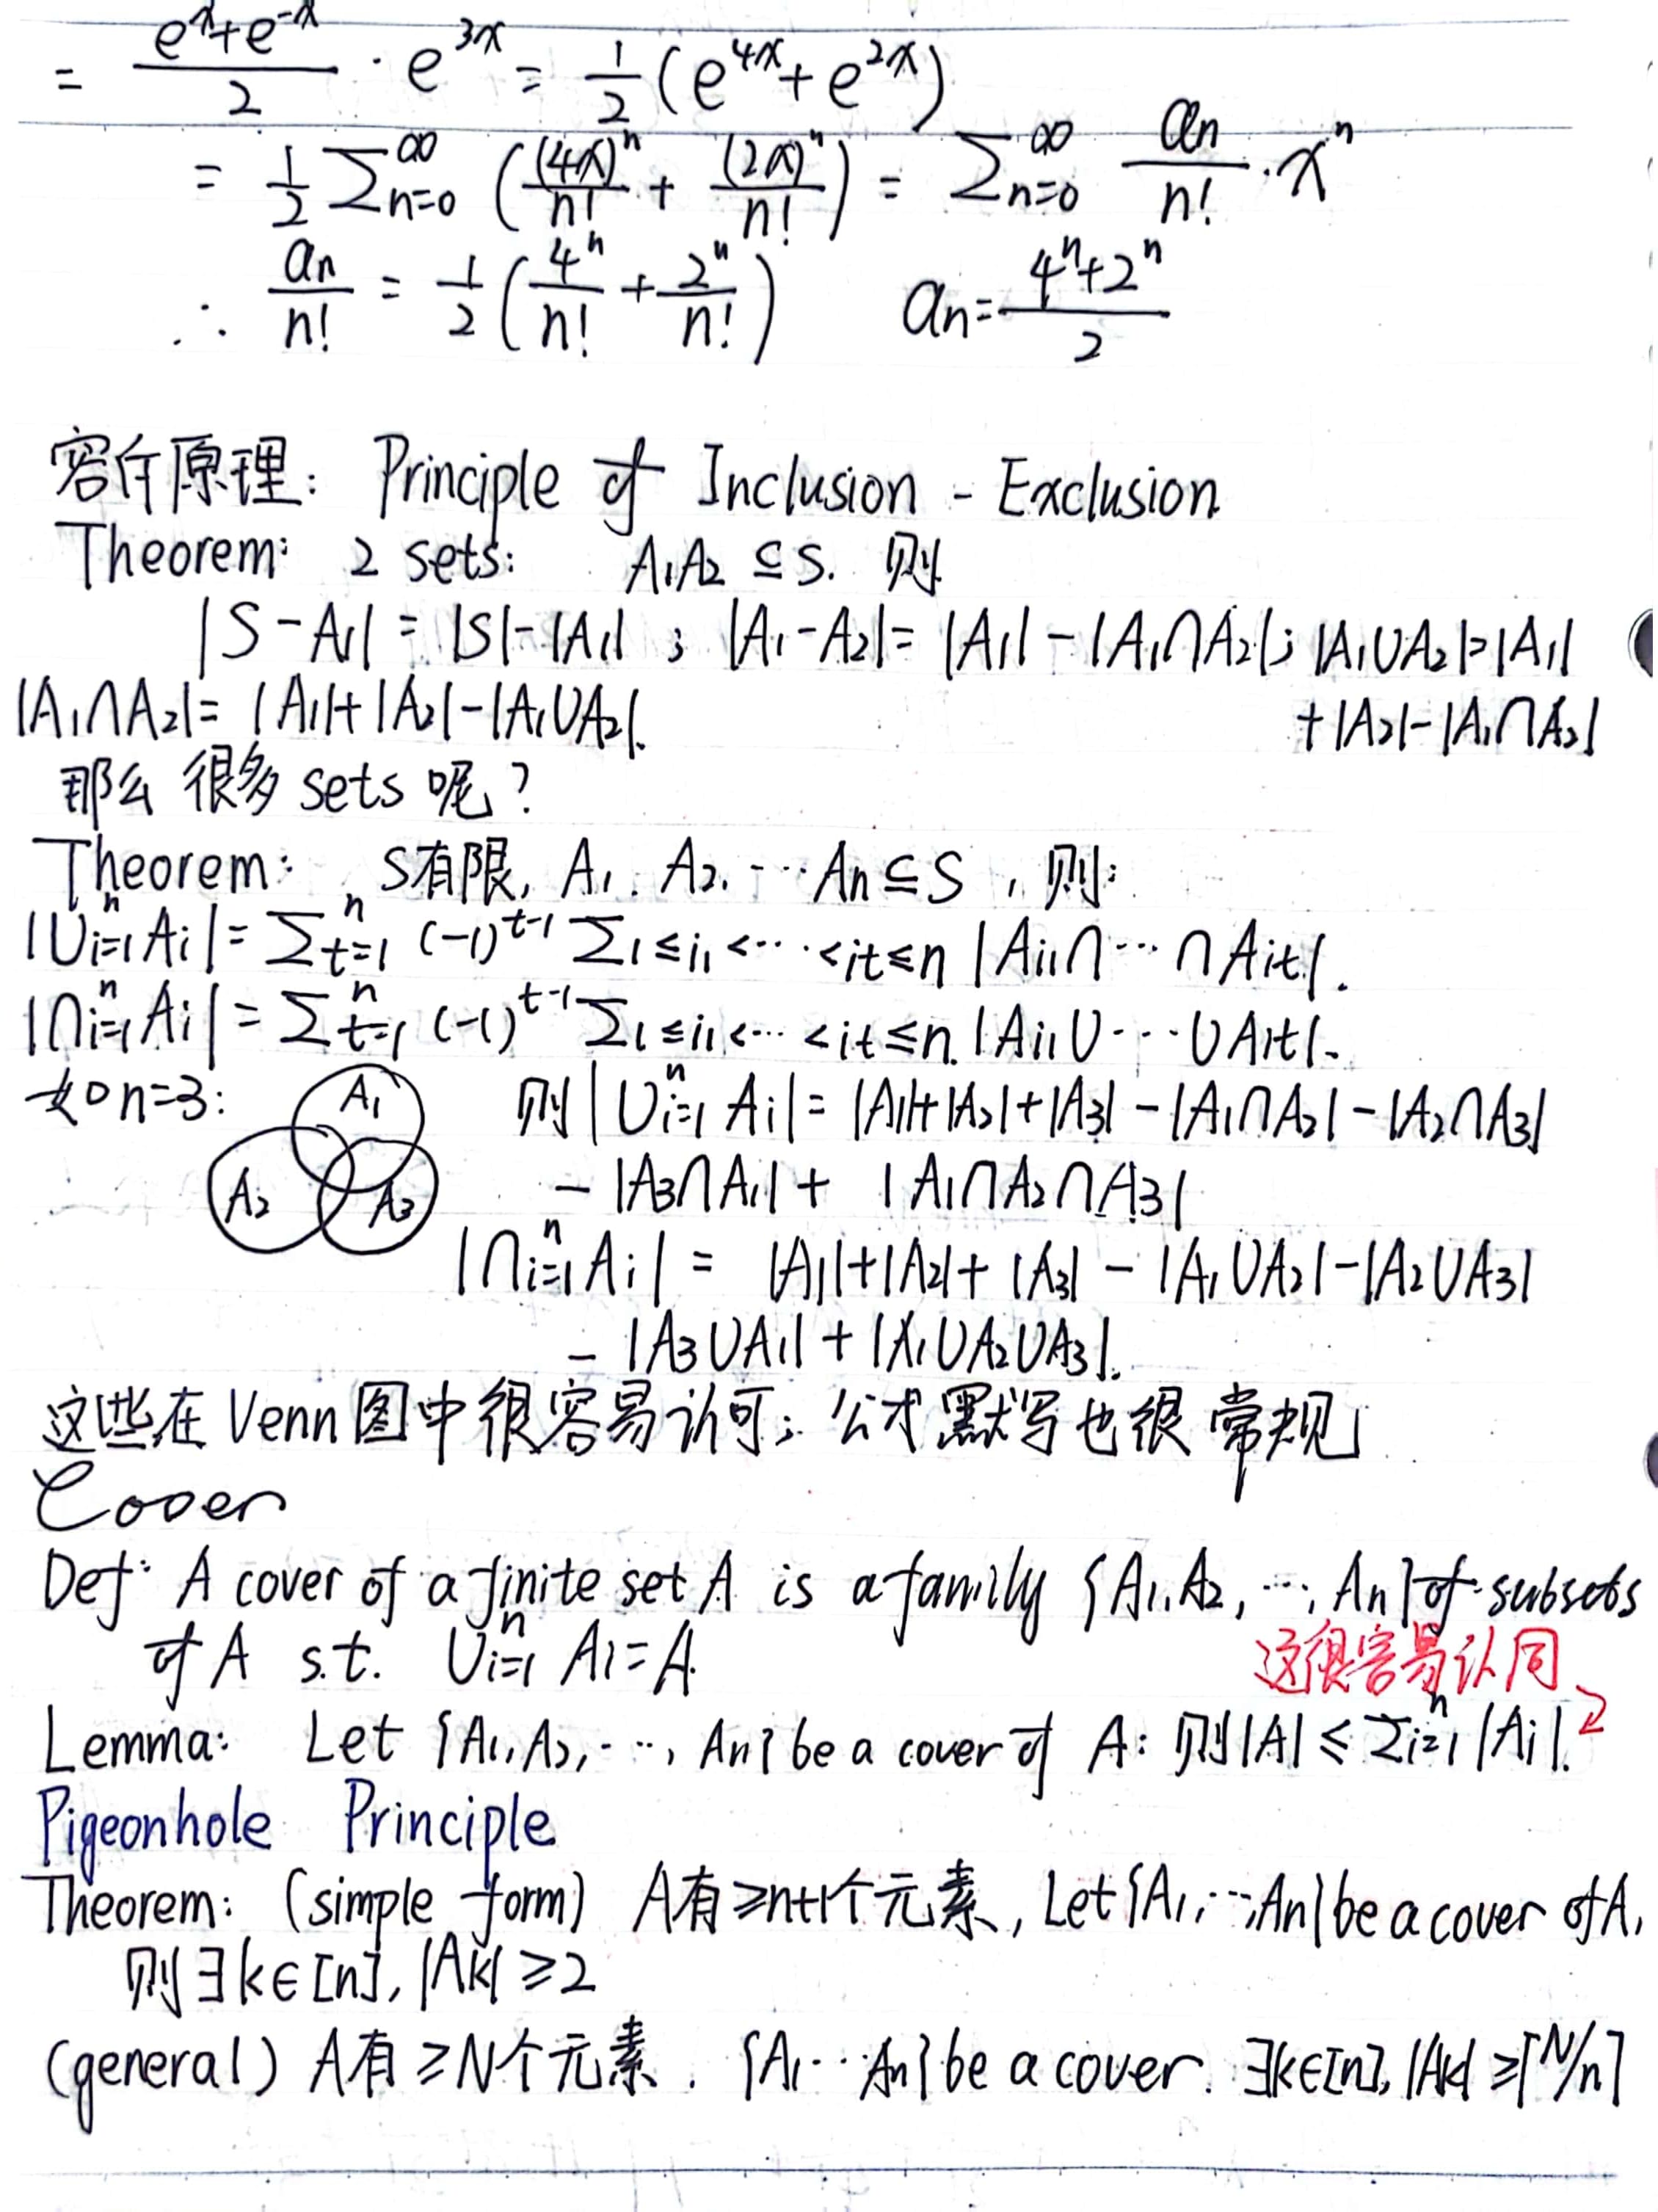 = (e^x+e^-x)/2 · e^3x = 1/2 (e^4x + e^2x)
= 1/2 ∑_{n=0}^∞ ((4x)^n/n! + (2x)^n/n!) = ∑_{n=0}^∞ an/n! · x^n
∴ an/n! = 1/2 (4^n/n! + 2^n/n!) an = (4^n+2^n)/2
容斥原理: Principle of Inclusion - Exclusion.
Theorem: 2 sets: A₁A₂ ⊆ S. 则
|S-A₁| = |S|-|A₁| ; |A₁-A₂| = |A₁| - |A₁∩A₂|; |A₁∪A₂|=|A₁|
+|A₂|-|A₁∩A₂|
|A₁∩A₂| = |A₁|+|A₂|-|A₁∪A₂|.
那么 很多 sets 呢?
Theorem: S有限, A₁. A₂. ⋯ An ⊆ S , 则:
|∪_{i=1}^n Ai| = ∑_{t=1}^n (-1)^{t-1} ∑_{1≤i₁<⋯<it≤n} |Ai₁∩⋯∩Ait|.
|∩_{i=1}^n Ai| = ∑_{t=1}^n (-1)^{t-1} ∑_{1≤i₁<⋯<it≤n} |Ai₁∪⋯∪Ait|.
如n=3: A₁ A₂ A₃ 则|∪_{i=1}^n Ai| = |A₁|+|A₂|+|A₃| - |A₁∩A₂| - |A₂∩A₃|
- |A₃∩A₁| + |A₁∩A₂∩A₃|
|∩_{i=1}^n Ai| = |A₁|+|A₂|+|A₃| - |A₁∪A₂| - |A₂∪A₃|
- |A₃∪A₁| + |A₁∪A₂∪A₃|.
这些在 Venn 图中很容易认可; 公式默写也很常规
Cover
Def: A cover of a finite set A is a family {A₁, A₂, ⋯, An} of subsets
of A s.t. ∪_{i=1}^n Ai = A.
这很容易认同
Lemma: Let {A₁, A₂, ⋯, An} be a cover of A: 则|A| ≤ ∑_{i=1}^n |Ai|.
Pigeonhole Principle
Theorem: (simple form) A有≥n+1个元素, Let {A₁, ⋯, An} be a cover of A,
则∃k∈[n], |Ak| ≥2
(general) A有 ≥N个元素. {A₁⋯An} be a cover. ∃k∈[n], |Ak| ≥⌈N/n⌉